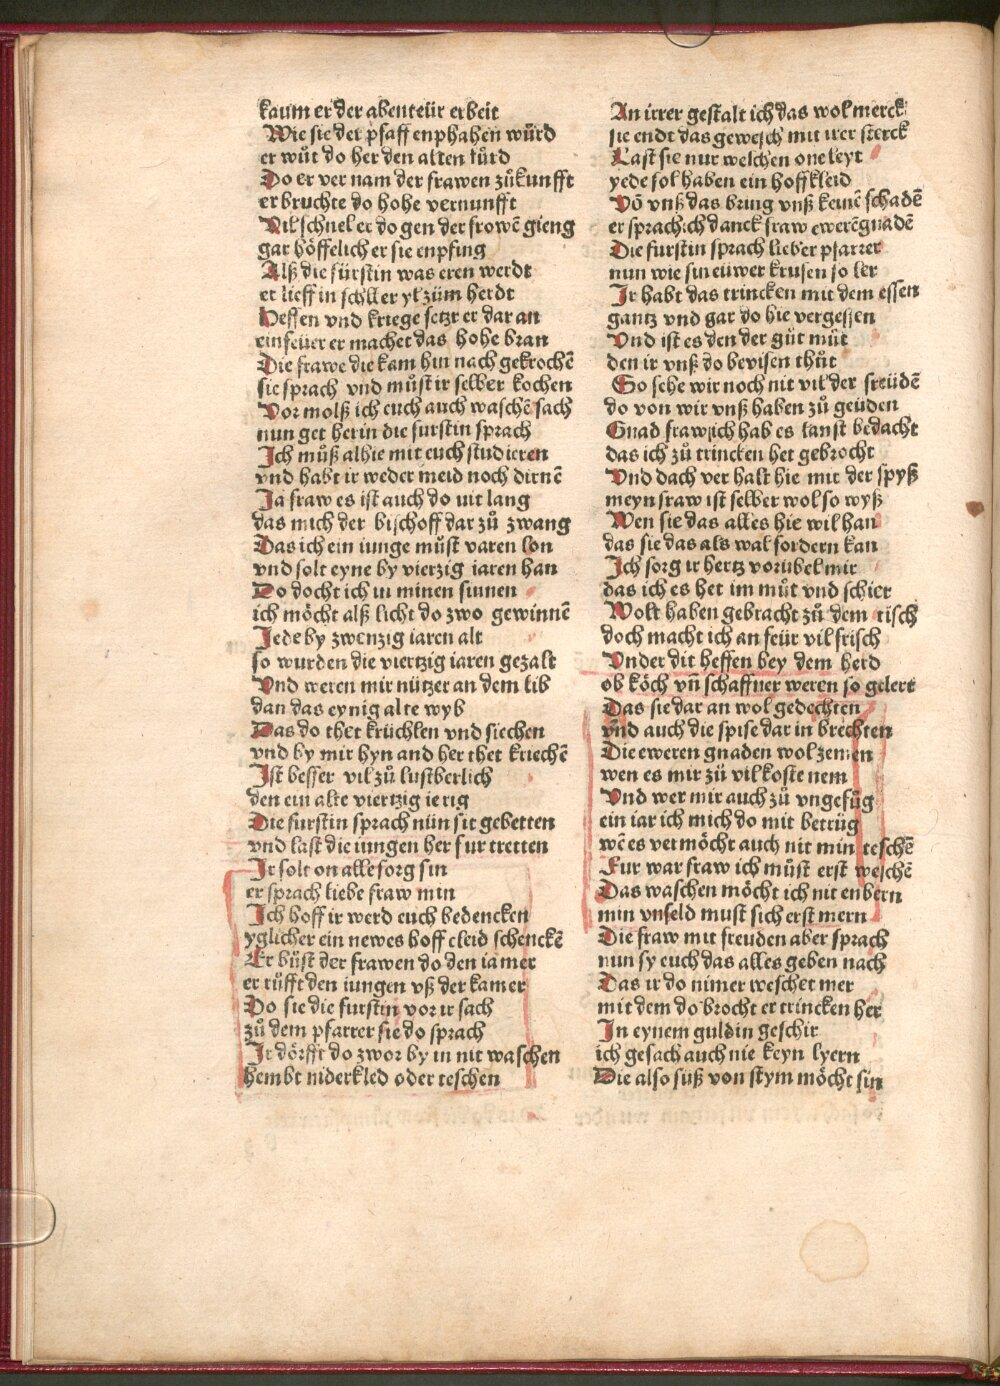 kaum er der abenteür erbeit
Wie sie der pfaff enphahen würd
er wůt do her den alten fürd
Do er ver nam der frawen zůkunfft
er bruchte do hohe vernunfft
Vil schnel er do gen der frowē gieng
gar höffelich er sie enpfing
Alß die fürstin was eren werdt
er lieff in schller yl züm herdt
Heffen vnd kriege setzt er dar an
ein feüer er machet das hohe bran
Die frawe die kam hin nach gekrochē
sie sprach vnd můst ir selber kochen
Vor molß ich euch auch waschē sach
nun get herin die furstin sprach
Ich můß alhie mit euch studieren
vnd habt ir weder meid noch dirnē
Ja fraw es ist auch do nit lang
das mich der bischoff dar zů zwang
Das ich ein iunge můst varen lon
vnd solt eyne by vierzig iaren han
Do docht ich in minen sinnen
ich möcht alß licht do zwo gewinnē
Jede by zwenzig iaren alt
so wurden die viertzig iaren gezalt
Vnd weren mir nützer an dem lib
dan das eynig alte wyb
Das do thet krüchlen vnd siechen
vnd by mir hyn and her thet kriechē
Ist besser vil zů lustberlich
den ein alte viertzig ierig
Die furstin sprach nün sit gebetten
vnd last die iungen her fur tretten
Ir solt on alle sorg sin
er sprach liebe fraw min
Ich hoff ir werd euch bedencken
yglicher ein newes hoff cleid schenckē
Er büst der frawen do den iamer
er rüfft den iungen vß der kamer
Do sie die furstin vor ir sach
zů dem pfarrer sie do sprach
Ir dörfft do zwor by in nit waschen
hembt niderkled oder teschen
An irrer gestalt ich das wol merck
sie endt das gewesch mit irer sterck
Last sie nur welchen one leyt
yede sol haben ein hoffkleid
Vō vnß das bring vnß keinē schadē
er sprach ich danck fraw ewerē gnadē
Die furstin sprach lieber pfarrer
nun wie sin eüwer krusen so ler
Ir habt das trincken mit dem essen
gantz vnd gar do hie vergessen
Vnd ist es den der gůt můt
den ir vnß do bevisen thůt
So sehe wir noch nit vil der freüdē
do von wir vnß haben zů geüden
Gnad fraw ich hab es lanst bedacht
das ich zů trincken het gebrocht
Vnd dach ver halt hie mit der spyß
meyn fraw ist selber wol so wyß
Wen sie das alles hie wil han
das sie das als wal fordern kan
Ich sorg ir hertz vorubel mir
das ich es het im můt vnd schier
Wolt haben gebracht zů dem tisch
doch macht ich an feür vil frisch
Vnder dit heffen bey dem herd
ob köch vn̄ schaffner weren so gelert
Das sie dar an wol gedechten
vnd auch die spise dar in brechten
Die eweren gnaden wol zemen
wen es mir zů vil koste nem
Vnd wer mir auch zů vngefůg
ein iar ich mich do mit betrüg
wē es vet möcht auch nit min teschē
Fur war fraw ich můst erst weschē
Das waschen möcht ich nit enbern
min vnfeld must sich erst mern
Die fraw mit freuden aber sprach
nun sy euch das alles geben nach
Das ir do nimer weschet mer
mit dem do brocht er trincken her
In eynem guldin geschir
ich gesach auch nie keyn lyern
Die also süß von stym möcht sin